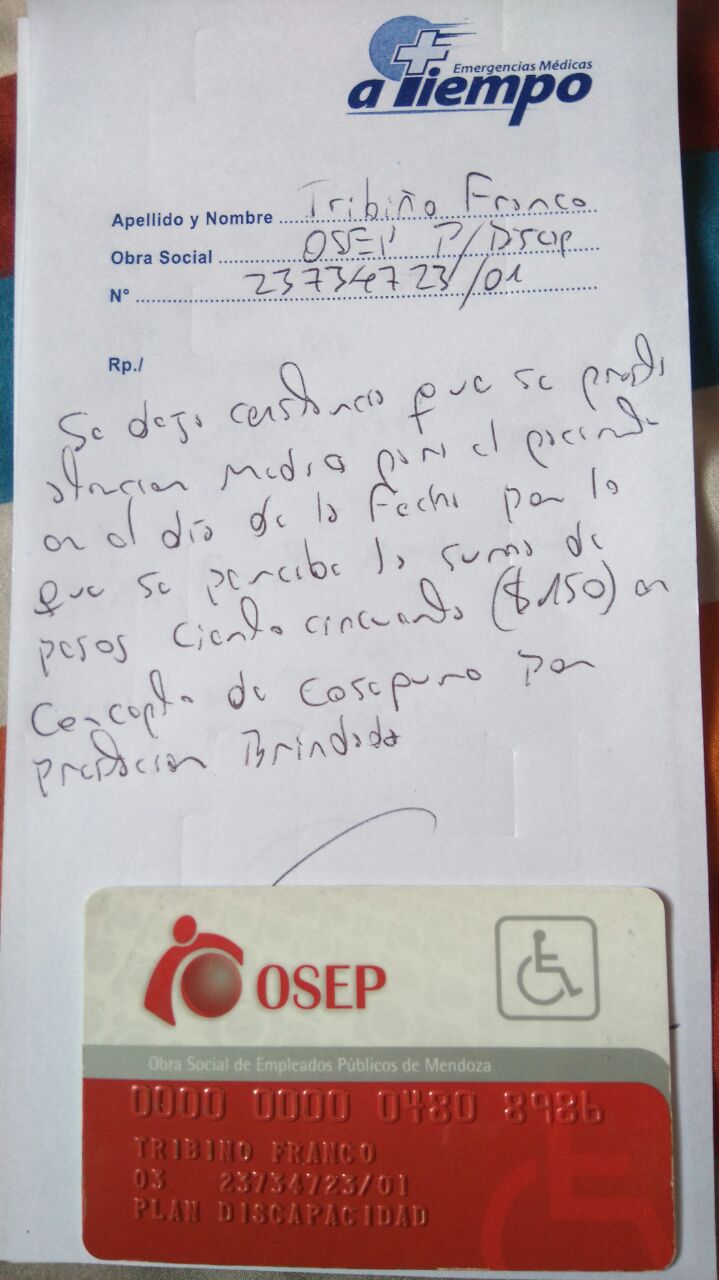 Emergencias Médicas
a Tiempo
Apellido y Nombre Tribiño Franco
Obra Social OSEP P/Discap
N° 23734723/01
Rp./
Se deja constancia que se presta
atencion medica para el paciente
en el día de la Fecha por lo
que se percibe la suma de
pesos ciento cincuenta ($150) en
Concepto de Coseguro por
prestacion Brindada
OSEP
Obra Social de Empleados Públicos de Mendoza
0000 0000 0480 8986
TRIBINO FRANCO
03 23734723/01
PLAN DISCAPACIDAD